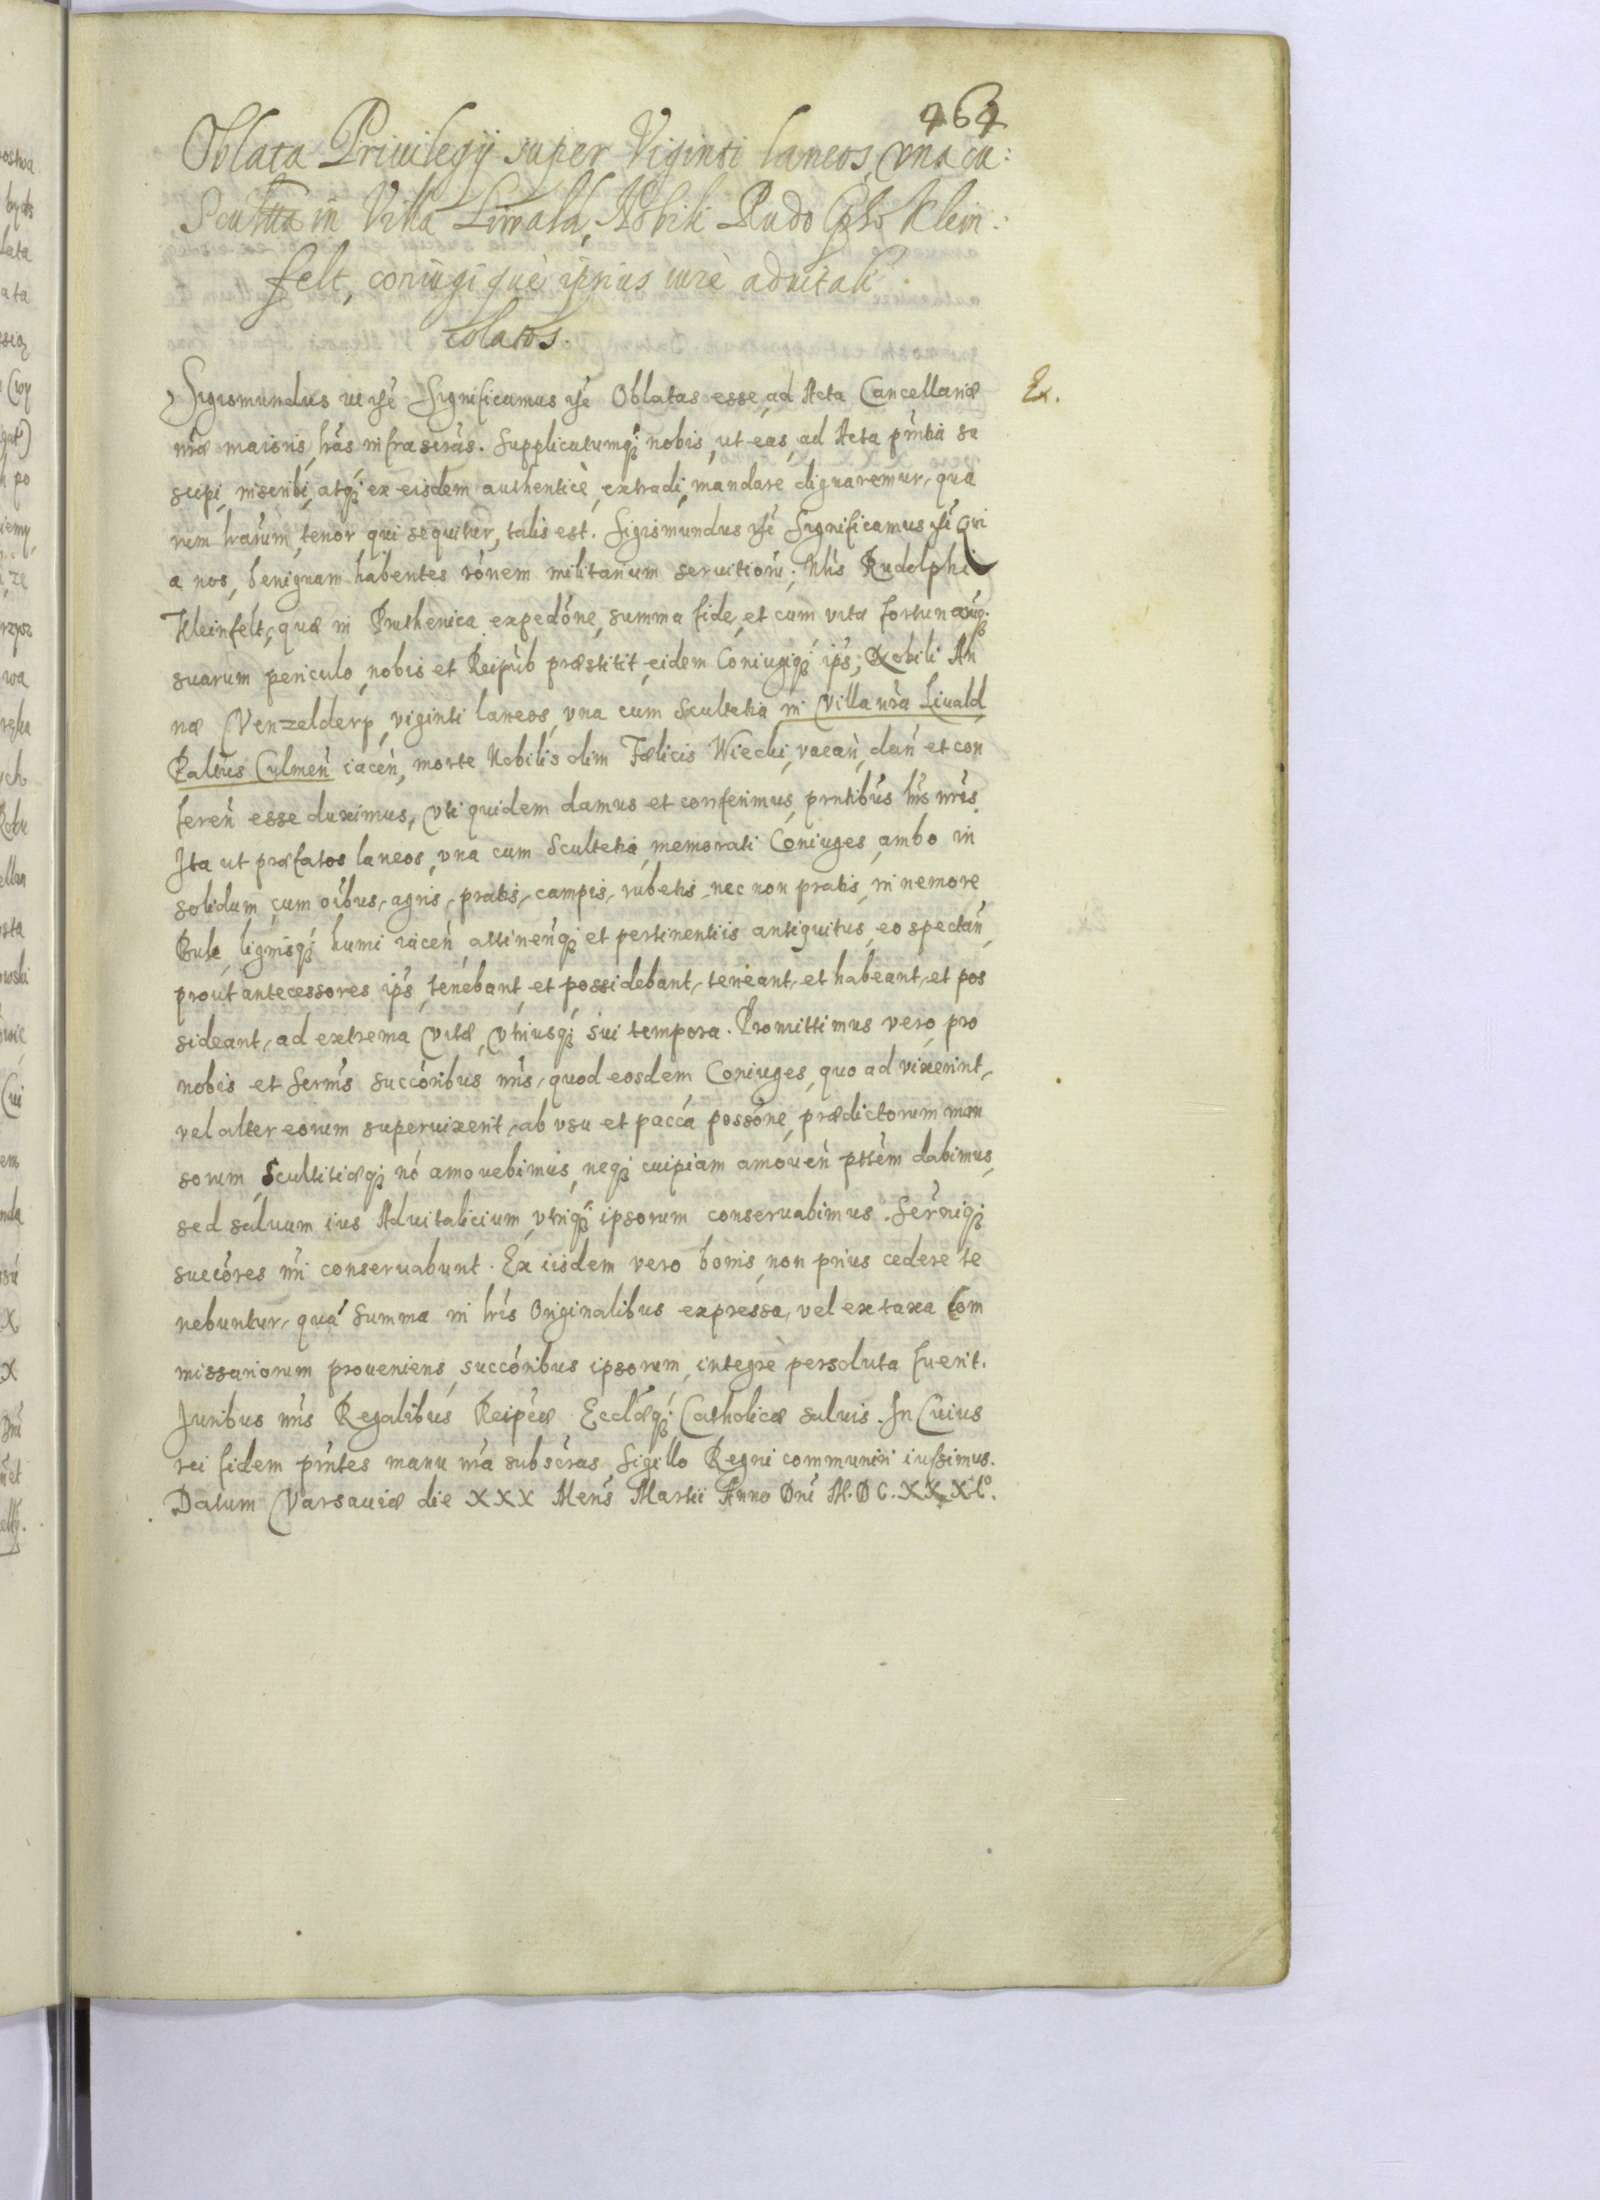 464
Oblata Priuilegij super Viginti laneos, vna cu:
Scultta in Villa Liwald, Nobili Rudolpho Klein:
felt, coniugi què ipsius iurè aduitali
colatos.
Sigismundus III etc̃ Significamus etc̃ Oblatas esse, ad Acta Cancellariæ
nr̃æ maioris, lr̃as infrascr̃as. Supplicatumq₃ nobis, ut eas, ad Acta pr̃ntia su
scipi, inscribi, atq₃ ex eisdem authenticè, extradi, mandare dignaremur, qua
rum lr̃arum, tenor qui sequitur, talis est. Sigismundus etc̃ Significamus etc̃ Qui
a nos, benignam habentes rõnem militarium seruitiorũ, Nl̃is Rudolphi
Kleinfelt, quæ in Pruthenica expedõne, summa fide, et cum vitæ fortunarũq₃
suarum periculo, nobis et Reipub præstitit, eidem Coniugiq₃ ips̃, Nobili An
næ Venzelderp, viginti laneos, vna cum Scultetia, in Villa nr̃a Liuald,
Paltus Culmeñ iaceñ, morte Nobilis olim Fælicis Wiecki, vacañ, dañ et con
fereñ esse duximus, Vti quidem damus et conferimus, pr̃ntibus lr̃is nr̃is.
Ita ut præfatos laneos, vna cum Scultetia, memorati Coniuges, ambo in
solidum, cum oĩbus, agris, pratis, campis, rubetis, nec non pratis, in nemore
Bule, lignisq₃ humi iaceñ, attineñq₃ et pertinentiis antiquitus, eo spectañ,
prout antecessores ips̃, tenebant, et possidebant, teneant, et habeant, et pos
sideant, ad extrema Vitæ, Vtriusq₃ sui tempora. Promittimus vero, pro
nobis et Serm̃is succõribus nr̃is, quod eosdem Coniuges, quo ad vixerint,
vel alter eorum superuixerit, ab vsu et pacc̃a possõne, prædictorum man
sorum Scultitiæq₃ nõ amouebimus, neq₃ cuipiam amoueñ ptt̃em dabimus,
sed saluum ius Aduitalicium, vtriq₃ ipsorum conseruabimus. Ser̃niq₃
succõres nr̃i conseruabunt. Ex iisdem vero bonis, non prius cedere te
nebuntur, quã summa in lr̃is Originalibus expressa, vel ex taxa Com
missariorum proueniens, succõribus ipsorum, integrè persoluta fuerit.
Iuribus nr̃is Regalibus, Reipc̃æ Eccl̃æq₃ Catholicæ saluis. In Cuius
rei fidem pr̃ntes manu nr̃a subscr̃as Sigillo Regni communiri iussimus.
Datum Varsauiæ die XXX Mens̃ Martii Anno Dñi M.DC.XXXI°.
Ex.